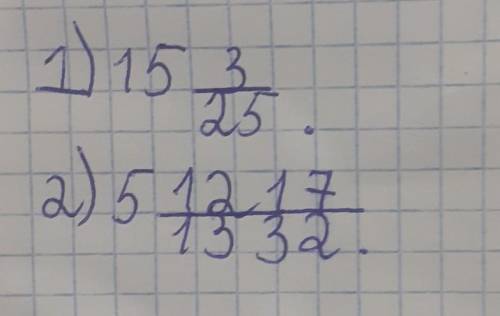 1) 15 3/25.
2) 5 1217/1332.